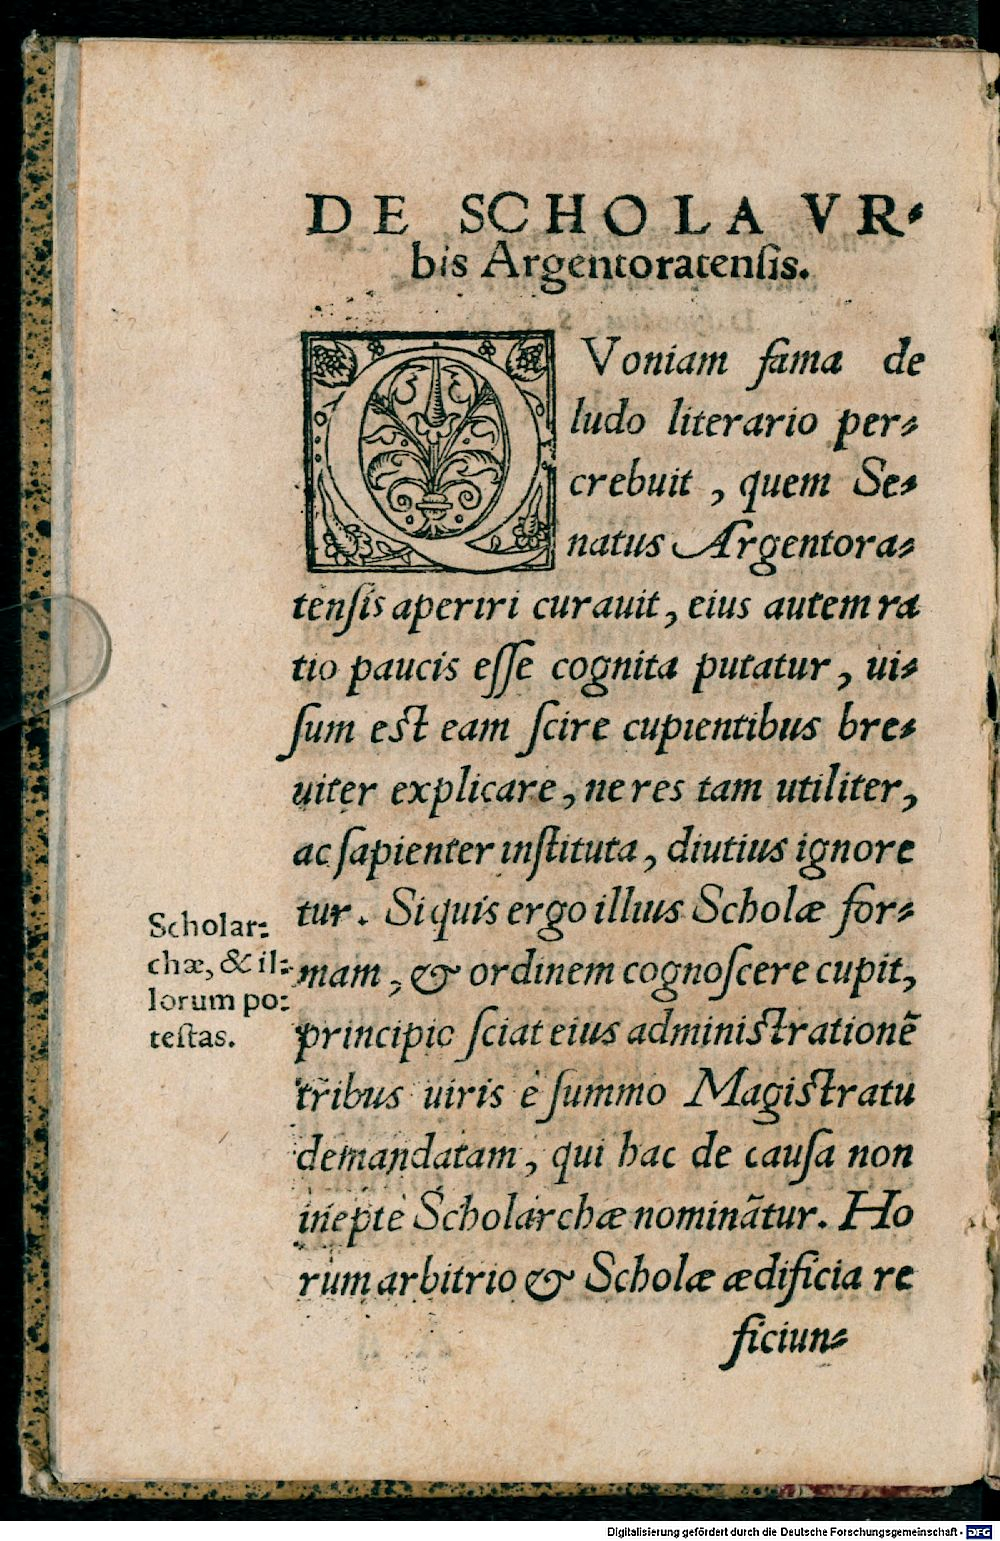 DE SCHOLA VR-
bis Argentoratensis.
QVoniam fama de
ludo literario per-
crebuit, quem Se-
natus Argentora-
tensis aperiri curauit, eius autem ra
tio paucis esse cognita putatur, ui-
sum est eam scire cupientibus bre-
uiter explicare, ne res tam utiliter,
ac sapienter instituta, diutius ignore
tur. Si quis ergo illius Scholæ for-
mam, & ordinem cognoscere cupit,
principio sciat eius administrationē
tribus uiris è summo Magistratu
demandatam, qui hac de causa non
inepte Scholarchæ nominātur. Ho
rum arbitrio & Scholæ ædificia re
ficiun-
Scholar-
chæ, & il-
lorum po-
testas.
Digitalisierung gefördert durch die Deutsche Forschungsgemeinschaft - DFG